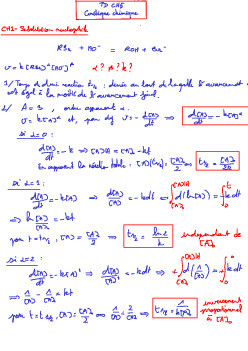 TD CH5
Cinétique chimique
CH1- Substitution nucléophile
RBr + HO⁻ = ROH + Br⁻
v = k [RBr]^α [HO⁻]^β α? β? k?
1/ Temps de demi réaction t1/2 : durée au bout de laquelle l'avancement
est égal à la moitié de l'avancement final.
2/ A = B, ordre apparent α.
v = k[A]^α et, par def v = - d[A]/dt ⇒ d[A]/dt = -k[A]^α
si α=0 :
d[A]/dt = -k ⇒ [A] = [A]₀ - kt
t1/2 = [A]₀/2k
si α=1 :
d[A]/dt = -k[A] ⇒ d[A]/[A] = -kdt ⇒ ∫ d(ln[A]) = -k∫dt
⇒ ln [A]/[A]₀ = -kt
pour t = t1/2, [A] = [A]₀/2 ⇒ t1/2 = ln2/k indépendant de [A]₀
si α=2 :
d[A]/dt = -k[A]² ⇒ d[A]/[A]² = -kdt ⇒ ∫ d(1/[A]) = k∫dt
⇒ 1/[A] - 1/[A]₀ = kt
pour t = t1/2, [A] = [A]₀/2 ⇒ 1/[A] = 2/[A]₀ ⇒ t1/2 = 1/k[A]₀ inversement proportionnel à [A]₀